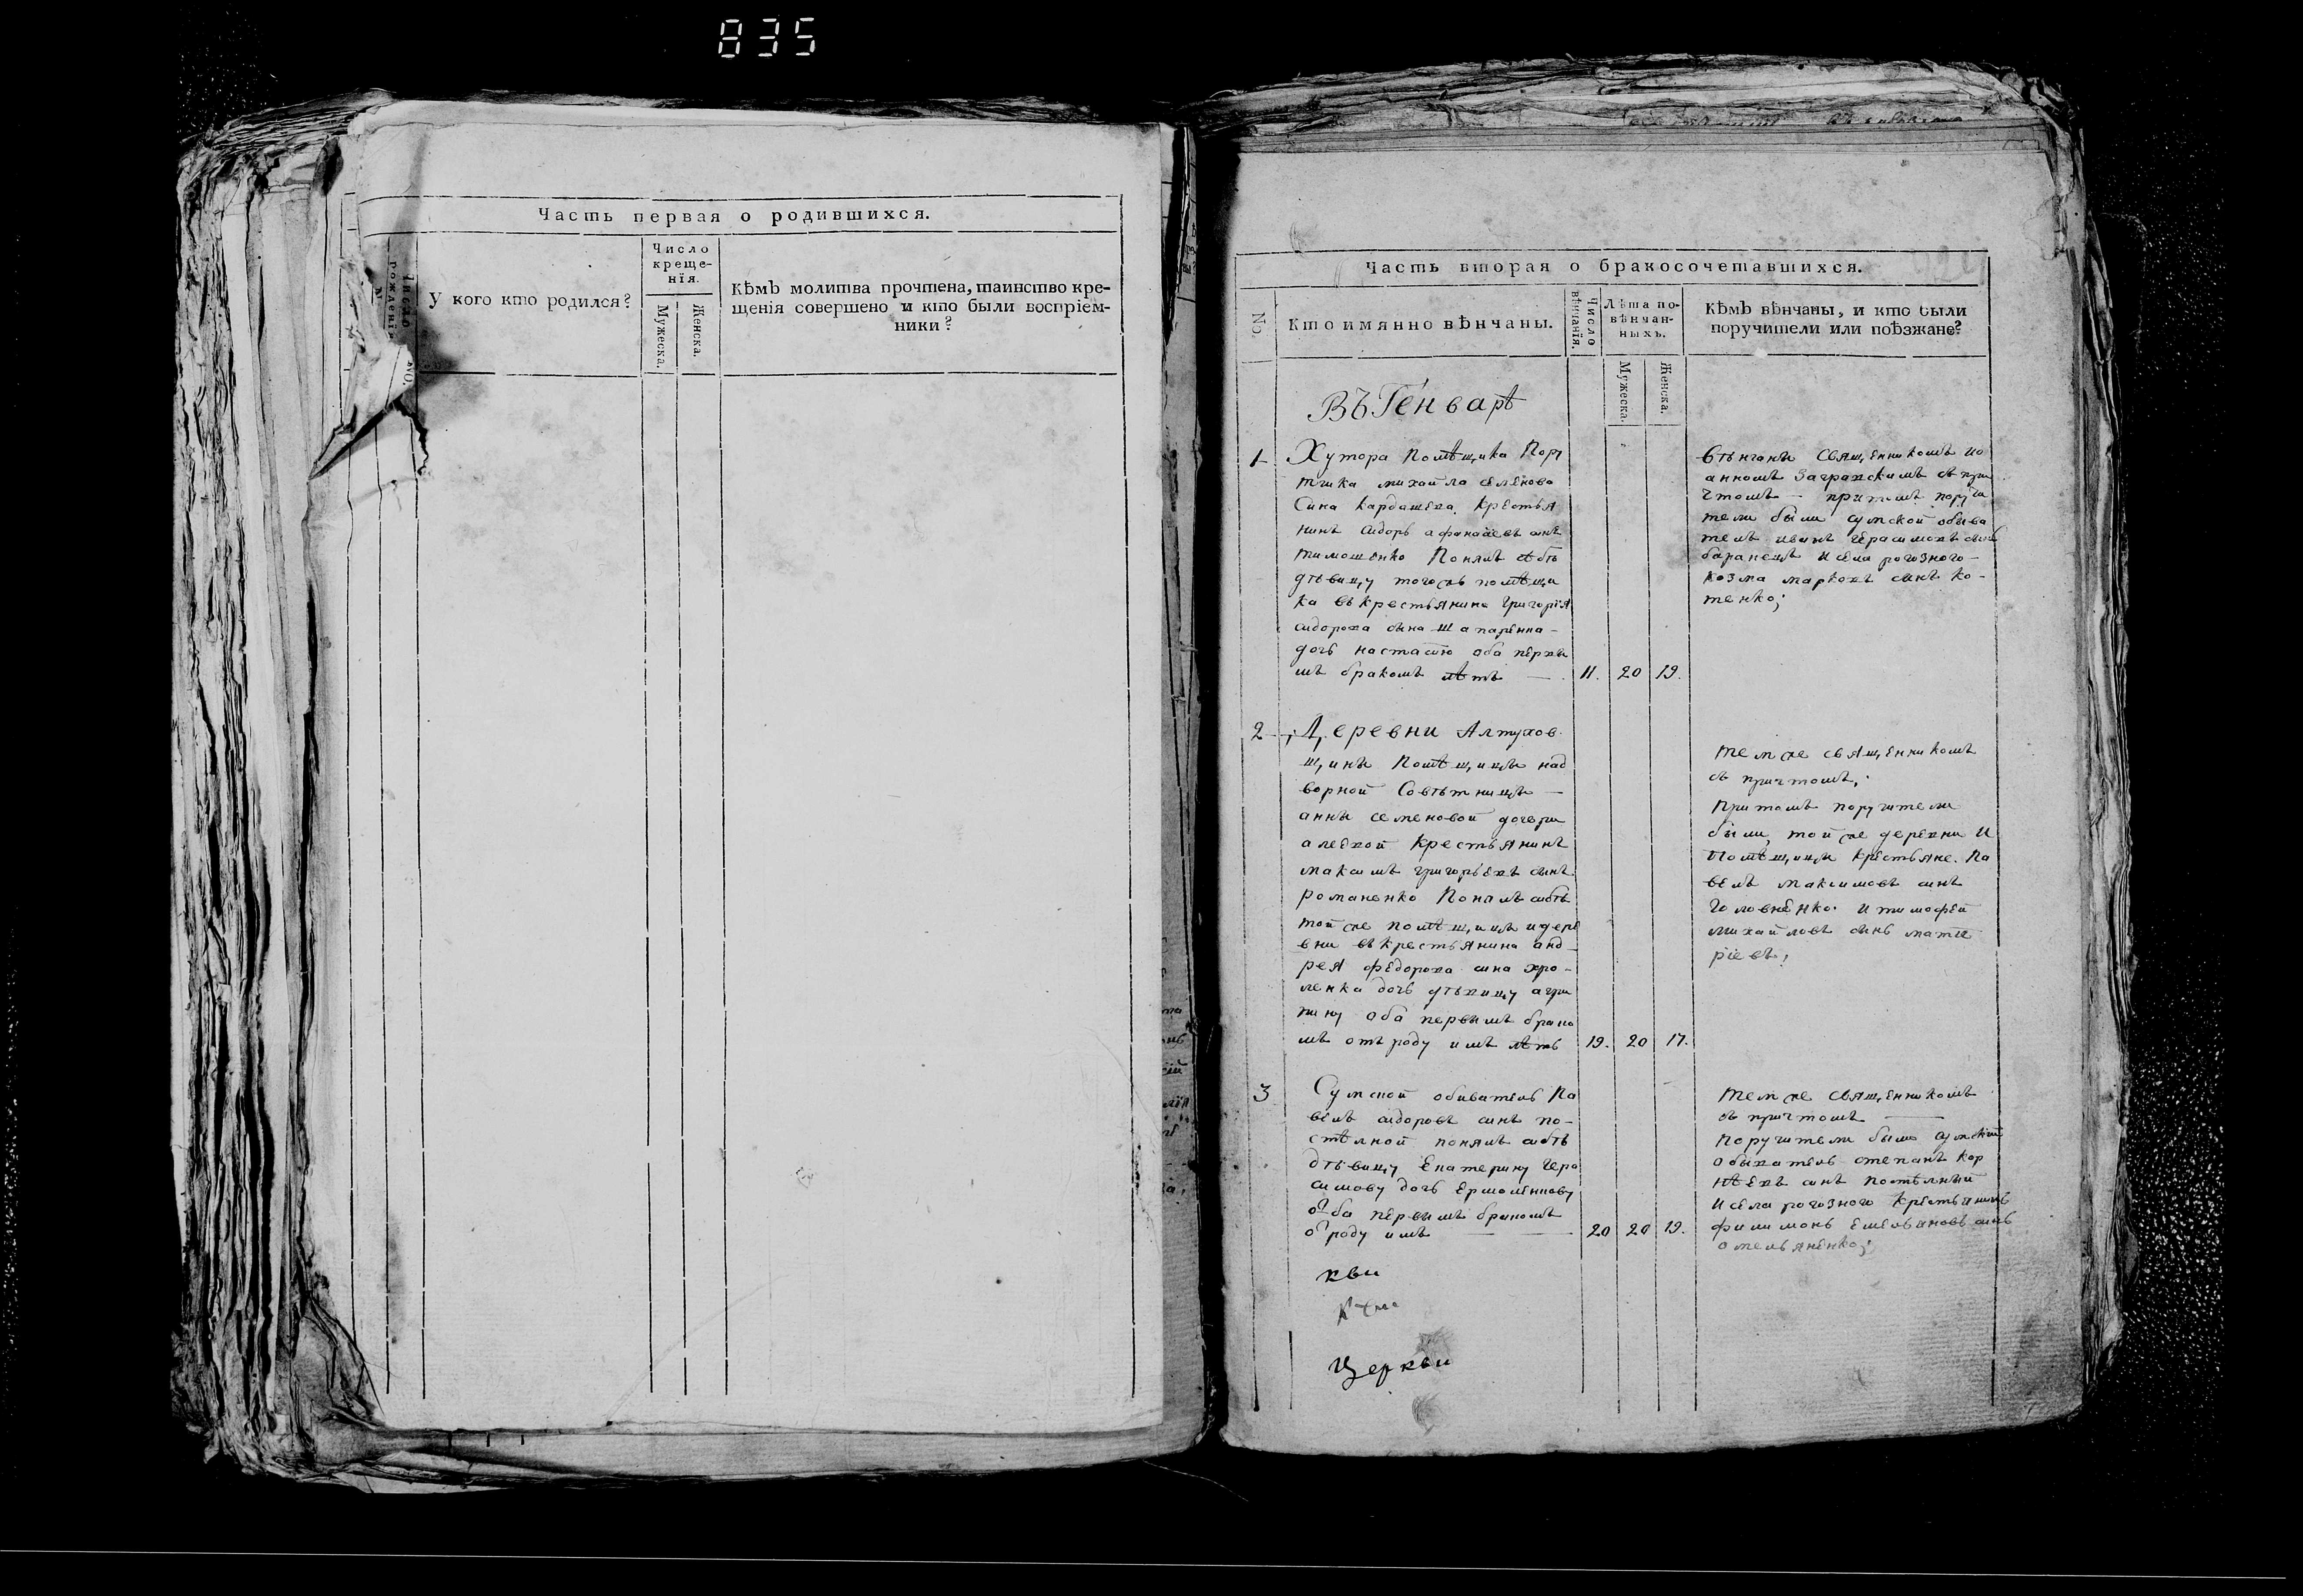 835
Часть первая о родившихся.
Число рожденія
No.
У кого кто родился?
Число
креще-
нїя.
Мужеска.
Женска.
Кѣмъ молитва прочтена, таинство кре-
щенія совершено и кто были воспріем-
ники?
Часть вторая о бракосочетавшихся.
No.
Кто имянно вѣнчаны.
Число вѣнчанїя.
Лѣта по-
вѣнчан-
ныхъ.
Мужеска.
Женска.
Кѣмъ вѣнчаны, и кто были
поручители или поѣзжане?
ВЪ Генварѣ
1
Хутора помѣщика Пору
тчика михайла семенова
Сина кардашева. крестья
нинъ сидоръ афанасіевъ синъ
тимошенко Понялъ себѣ
дѣвицу тогожъ помѣщи
ка въ крестьянина григорїя
сидорова сина шапаренка
дочь настасию оба первы
мъ бракомъ лѣтъ
11. 20 19.
вѣнчаны священникомъ їо
анномъ Заграфскимъ съ при
чтомъ - притомъ поручи
тели были сумской обива
тель иванъ герасимовъ синъ
баранецъ и села рогозного-
козма марковъ синъ ко-
тенко;
2
Деревни Алтухов
щины помѣщицы над
ворной Совѣтницы
анны семеновой дочери
алевой крестьянинъ
максимъ григорьевъ синъ
романенко Понялъ себѣ
той же помѣщицы и дере
вни въ крестьянина анд
рея федорова сина хро-
ленка дочь дѣвицу агри
пину оба первымъ брако
мъ отъ роду имъ лѣтъ
19. 20 17.
тем же священникомъ
съ причтомъ;
притомъ поручители
были, той же деревни и
помѣщицы крестьяне. Па
велъ максимовъ синъ
Головненко. и тимофей
михайловъ синъ матве
рїевъ;
3
Сумской обиватель Па
велъ сидоровъ синъ по-
стѣлной понялъ себѣ
дѣвицу Екатерину гера
симову дочь ермоленкову
оба первымъ бракомъ
отроду имъ
20 20 19.
тем же священникомъ
съ причтомъ
поручители были сумский
обыватель степанъ кор
нѣевъ синъ постѣлный
и села рогозного крестьянинъ
филимонъ емельяновъ синъ
омельяненко;
кви
Церкви